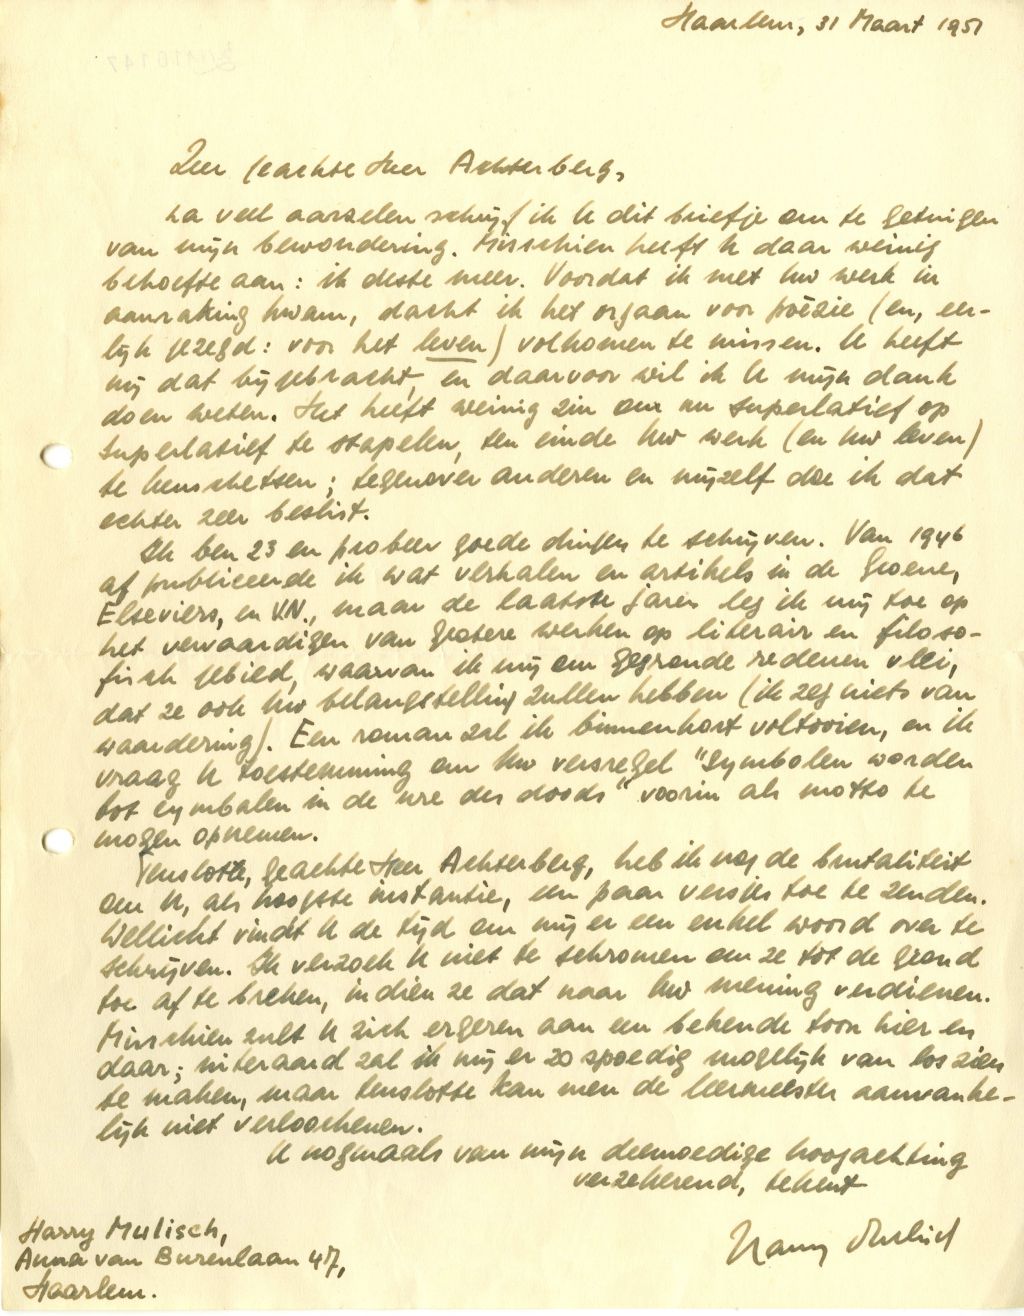 Haarlem, 31 Maart 1951
Zeer geachte Heer Achterberg,
na veel aarzelen schrijf ik U dit briefje om te getuigen
van mijn bewondering. Misschien heeft U daar weinig
behoefte aan: ik deste meer. Voordat ik met Uw werk in
aanraking kwam, dacht ik het orgaan voor poëzie (en, eer-
lijk gezegd: voor het leven) volkomen te missen. U heeft
mij dat bijgebracht, en daarvoor wil ik U mijn dank
doen weten. Het heeft weinig zin om nu superlatief op
superlatief te stapelen, ten einde Uw werk (en Uw leven)
te kenschetsen; tegenover anderen en mijzelf doe ik dat
echter zeer beslist.
Ik ben 23 en probeer goede dingen te schrijven. Van 1946
af publiceerde ik wat verhalen en artikels in de Groene,
Elseviers, en V.N., maar de laatste jaren leg ik mij toe op
het vervaardigen van grotere werken op literair en filoso-
fisch gebied, waarvan ik mij om gegronde redenen vlei,
dat ze ook Uw belangstelling zullen hebben (ik zeg niets van
waardering). Een roman zal ik binnenkort voltooien, en ik
vraag U toestemming om Uw versregel "Symbolen worden
tot cymbalen in de ure des doods" voorin als motto te
mogen opnemen.
Tenslotte, geachte Heer Achterberg, heb ik nog de brutaliteit
om U, als hoogste instantie, een paar versjes toe te zenden.
Wellicht vindt U de tijd om mij er een enkel woord over te
schrijven. Ik verzoek U niet te schromen om ze tot de grond
toe af te breken, indien ze dat naar Uw mening verdienen.
Misschien zult U zich ergeren aan een bekende toon hier en
daar; uiteraard zal ik mij er zo spoedig mogelijk van los zien
te maken, maar tenslotte kan men de leermeester aanvanke-
lijk niet verloochenen.
U nogmaals van mijn deemoedige hoogachting
verzekerend, tekent
Harry Mulisch
Harry Mulisch,
Anna van Burenlaan 47,
Haarlem.